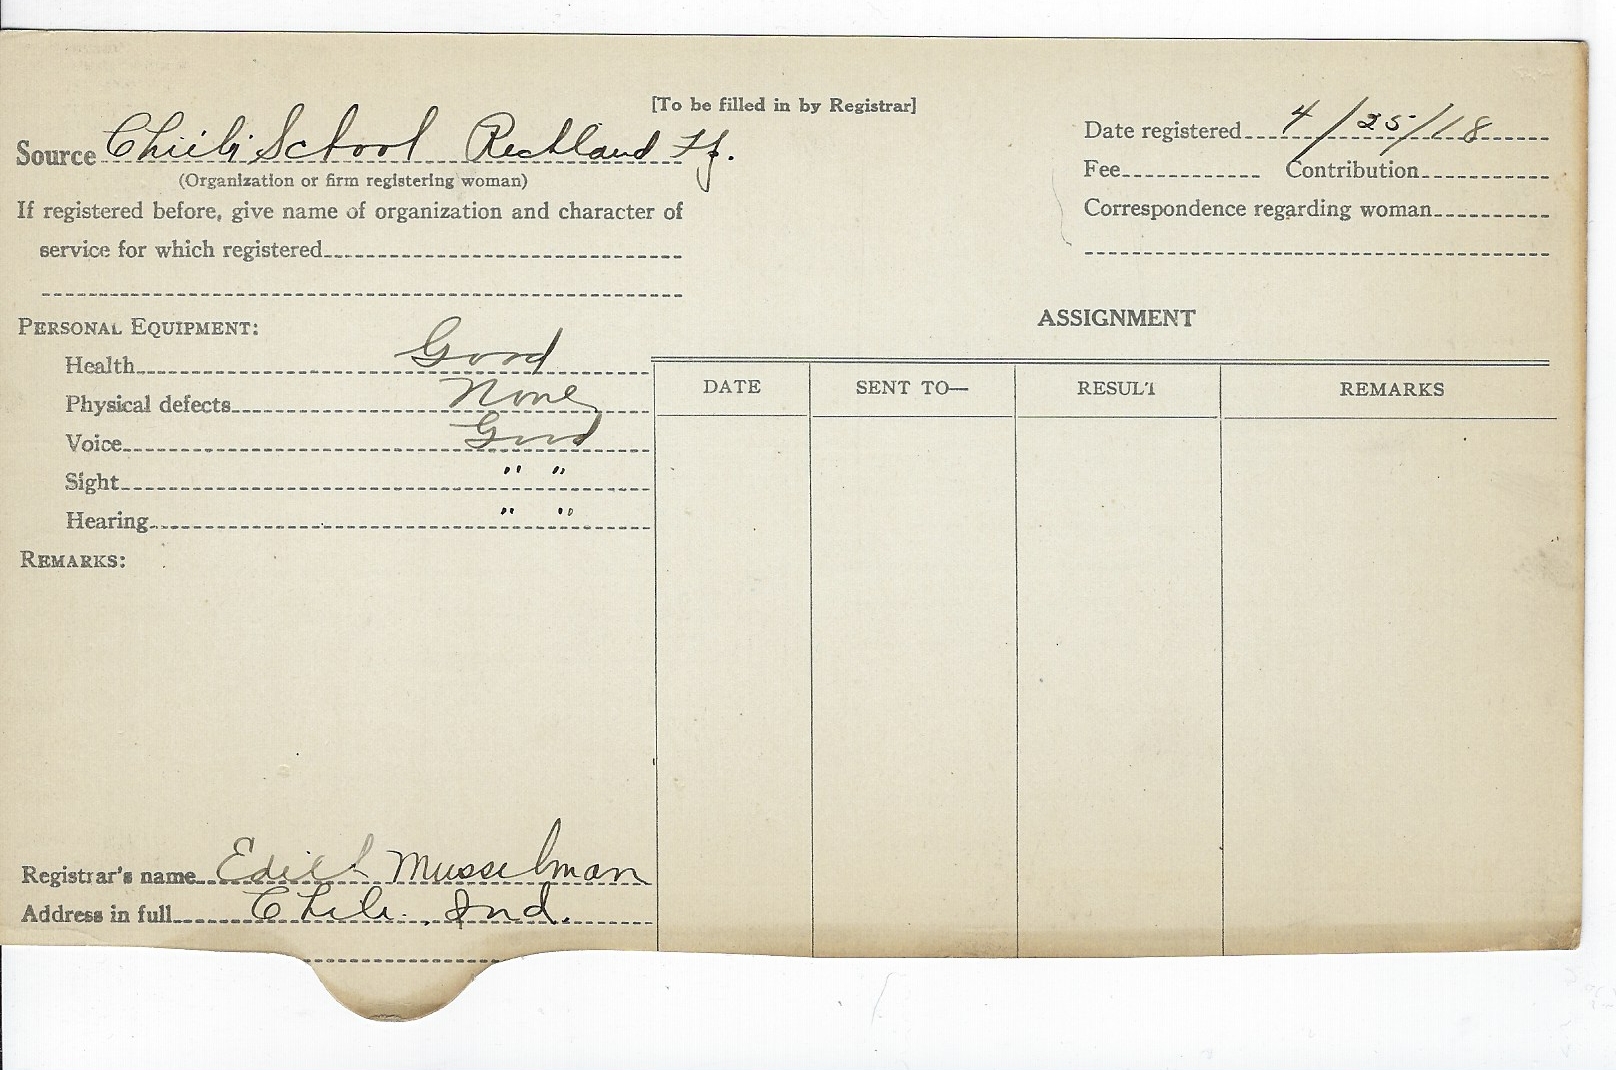 [To be filled in by Registrar]
Source Chili School Richland Tp.
(Organization or firm registering woman)
If registered before, give name of organization and character of
service for which registered
Date registered 4/25/18
Fee Contribution
Correspondence regarding woman
PERSONAL EQUIPMENT:
Health Good
Physical defects None
Voice Good
Sight " "
Hearing " "
REMARKS:
ASSIGNMENT
DATE SENT TO— RESULT REMARKS
Registrar's name Edith Musselman
Address in full Chili, Ind.